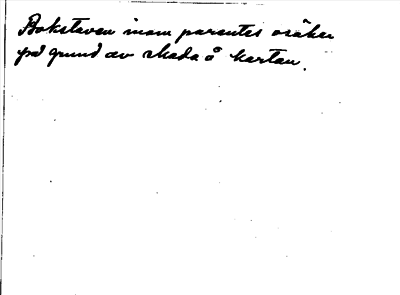 Bokstaven inom parentes osäker
på grund av skada å kartan.